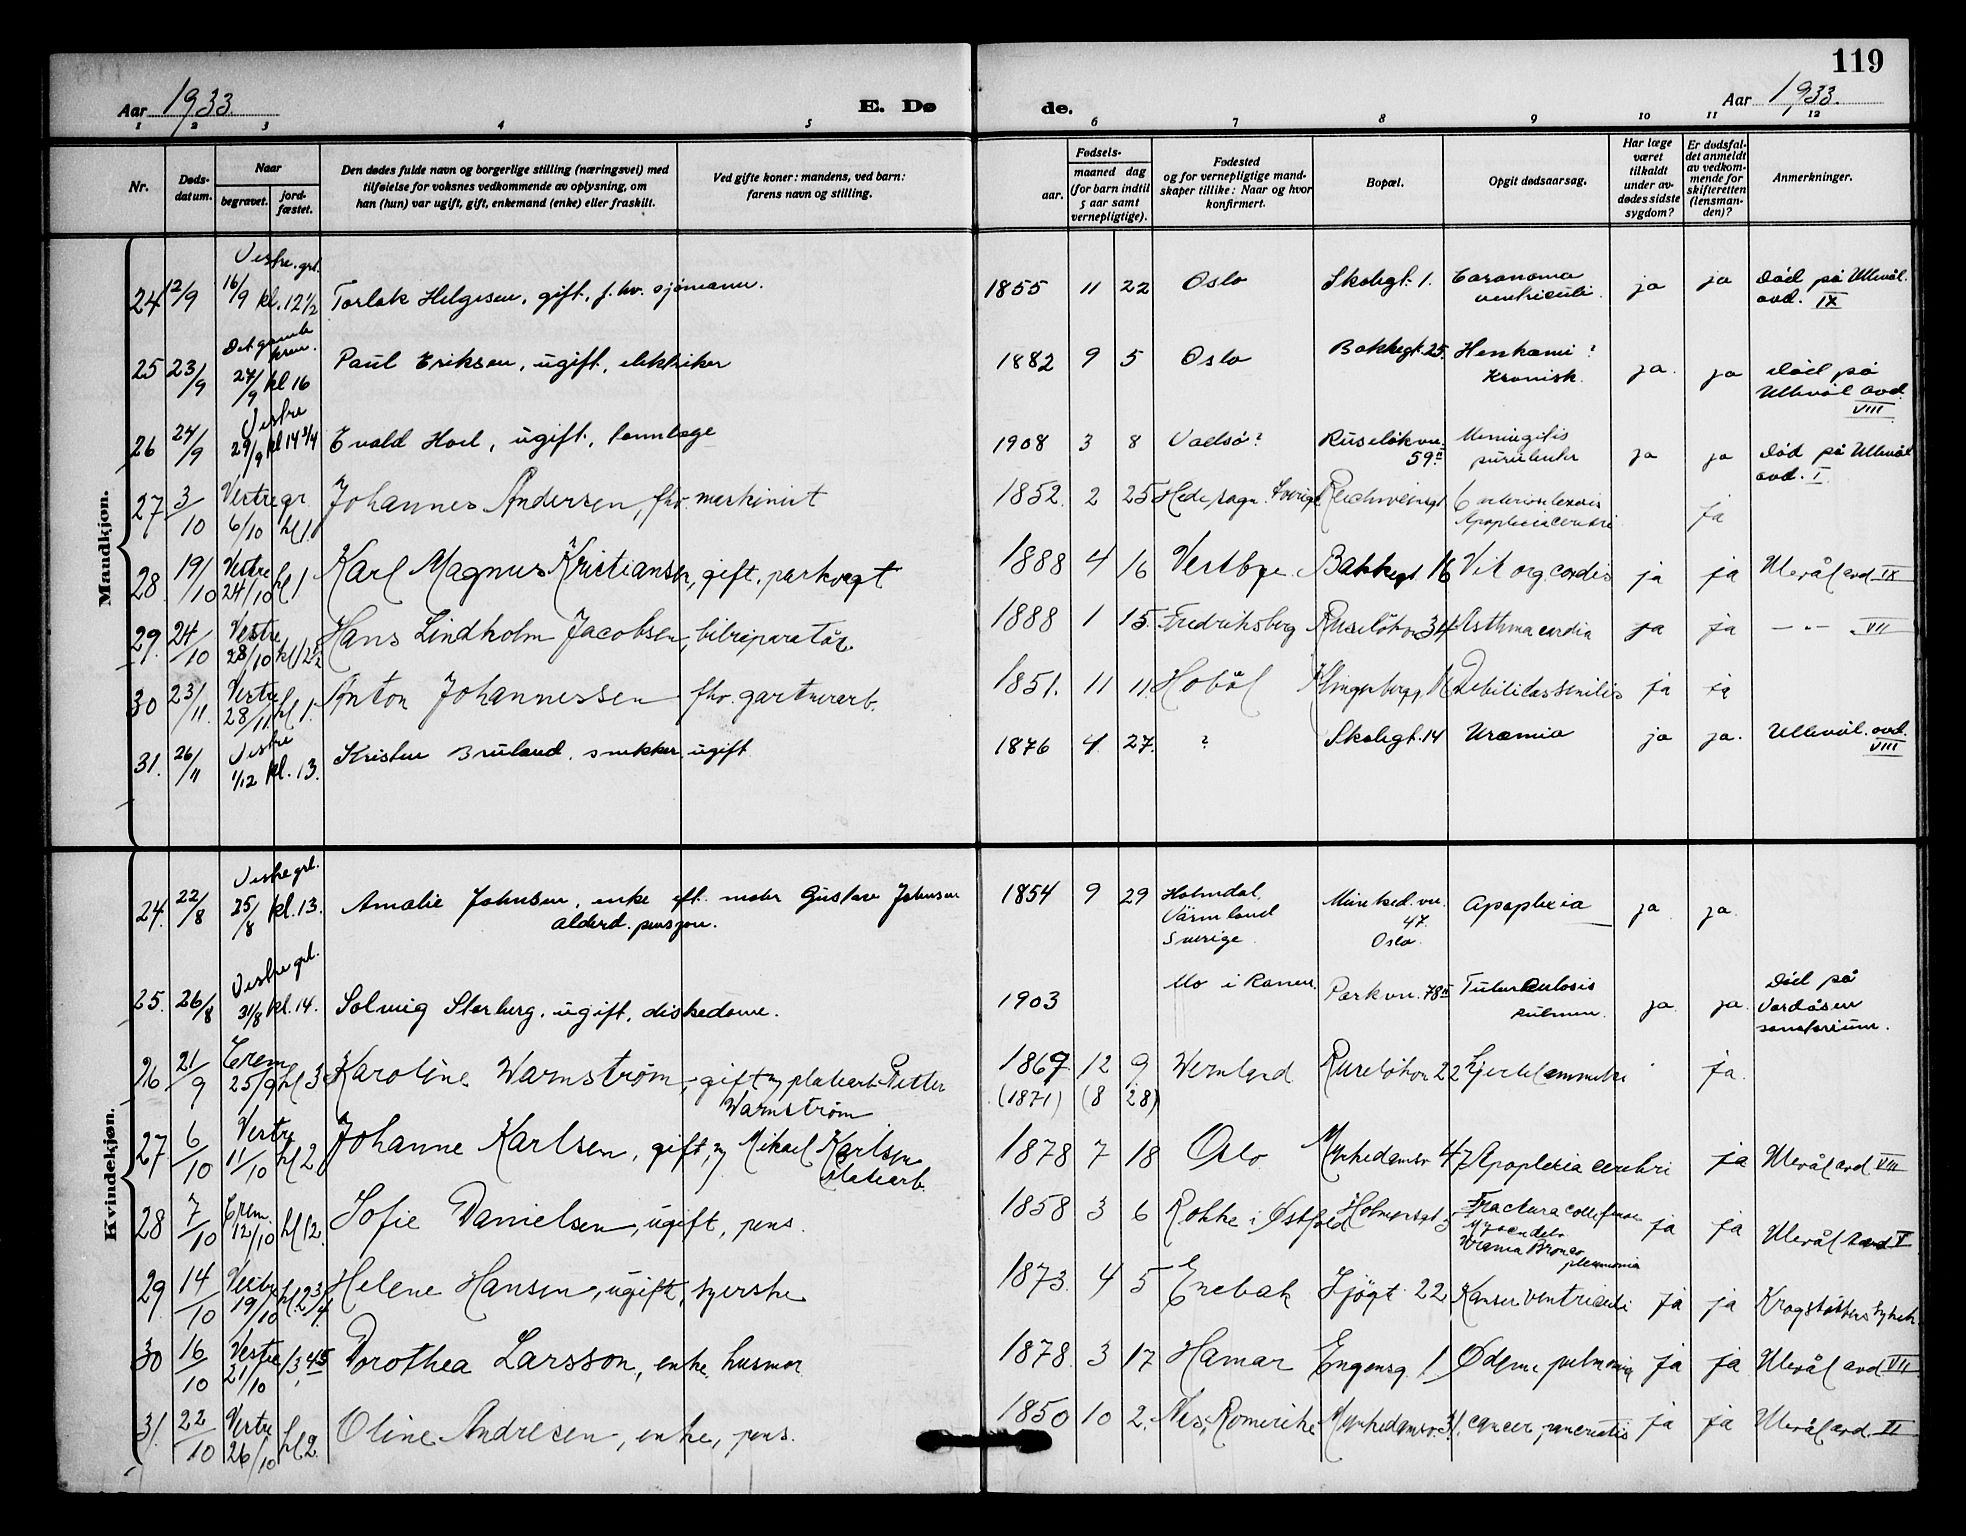 119
Aar 1933. E. Dø de. Aar 1933.
1 2 3 4 5 6 7 8 9 10 11 12
Nr.
Døds-
datum.
Naar
begravet.
jord-
fæstet.
Den dødes fulde navn og borgerlige stilling (næringsvei) med
tilføielse for voksnes vedkommende av oplysning, om
han (hun) var ugift, gift, enkemand (enke) eller fraskilt.
Ved gifte koner: mandens, ved barn:
farens navn og stilling.
Fødsels-
aar.
maaned dag
(for barn indtil
5 aar samt
vernepligtige).
Fødested
og for vernepligtige mand-
skaper tillike: Naar og hvor
konfirmert.
Bopæl.
Opgit dødsaarsag.
Har læge
været
tilkaldt
under av-
dødes sidste
sygdom?
Er dødsfal-
det anmeldt
av vedkom-
mende for
skifteretten
(lensman-
den)?
Anmerkninger.
Mandkjøn.
Vestre. grl.
24 12/9 16/9 kl. 12 1/2 Torlak Helgesen, gift, f. hv. sjömann. 1855 11 22 Oslo Skolegt. 1. ventriculi ja ja död på Ullevål.
avd. IX
Det gamle
krem.
25 23/9 27/9 kl 16 Paul Eriksen, ugift, elektriker 1882 9 5 Oslo Bakkegt. 25. ?
Kronisk. ja. ja död på
Ullevål avd.
VIII
Vestre
26 24/9 29/9 kl 14 3/4 Evald Hoel, ugift, tannlege 1908 3 8 Vadsö? Ruselökvn.
59 II Meningitis
purulenta ja ja död på Ullevål
avd. I
27 3/10 Vestre gr.
6/10 kl 1. Johannes Andersen, fhv. maskinist 1852 2 25 Hede sogn. Sverige Reichweinsgt
Apoplexia cerebri ja
28 19/10 Vestre
24/10 kl 1 Karl Magnus Kristiansen, gift, parkvagt 1888 4 16 Vestbye Bakkegt 16 Vit org cordis ja ja Ulevål avd IX
29. 24/10 Vestre
28/10 kl 12 1/2 Hans Lindholm Jacobsen, bilreparatör. 1888 1 15. Fredriksberg Ruselökvn 34 Asthma cordia ja ja — " — VII
30 23/11. Vestre
28/11 kl 1. Anton Johannessen fhv. gartnerarb. 1851. 11 11. Hobøl Klingenbergg. Debilitas senilis ja ja
31. 26/11 Vestre
1/12 kl. 13. Kristen Bruland. snekker, ugift 1876 4 27. ? Skolegt. 14 Uræmia ja ja. Ullevål. avd.
VIII
Kvindekjøn.
Vestre grl.
24. 22/8 25/8 kl. 13. Amalie Johnsen, enke eft. maler Gustav Johnsen
alderd. pensjon. 1854 9 29 Holmdal,
Värmland
Sverige. Munked. vn.
47.
Oslo. Apoplexia ja ja.
Vestre grl.
25. 26/8 31/8 kl. 14. Solveig Storberg. ugift, diskedame. 1903 Mo i Ranen. Parkvn. 78 II Tuberkulosis
pulmon. ja. ja. död på
Vardåsen
sanatorium.
26 21/9 Crem
25/9 kl 3 Karoline Warnström, gift m platearb Petter
Warnström 1869 12 9 Wermland Ruselökvn 22 Hjertelammelse ja.
(1871) (8 28)
27. 6/10 Vestre
11/10 kl 2 Johanne Karlsen, gift, m Mikael Karlsen
platearb. 1878 7 18 Oslo Munkedamsv 47 Apoplexia cerebri ja Ulevål avd VIII
28 7/10 Crem.
12/10 kl 12. Sofie Danielsen, ugift, pens. 1858 3 6 Rokke i Østfold Holmensgt 5 Fractura colli femor
Uræmia Bronco
pleumonia ja ja Ulevål avd V
29. 14/10 Vestre
19/10 kl. 2 3/4 Helene Hansen, ugift, syerske 1873. 4 5 Enebak Sjøgt 22 Kanser ventriculi ja ja Krogstöttens sykeh.
30 16/10 Vestre
21/10 13,45 Dorothea Larsson, enke, husmor 1878. 3 17 Hamar Engensg. 1 Ødeme pulmonum ja ja Ulevål avd VII
31. 22/10 Vestre
26/10 kl 2. Oline Andresen, enke, pens. 1850 10 2. Nes, Romerike Munkedamsv. 31. cancer pancreatis ja ja Ulevål avd. VI